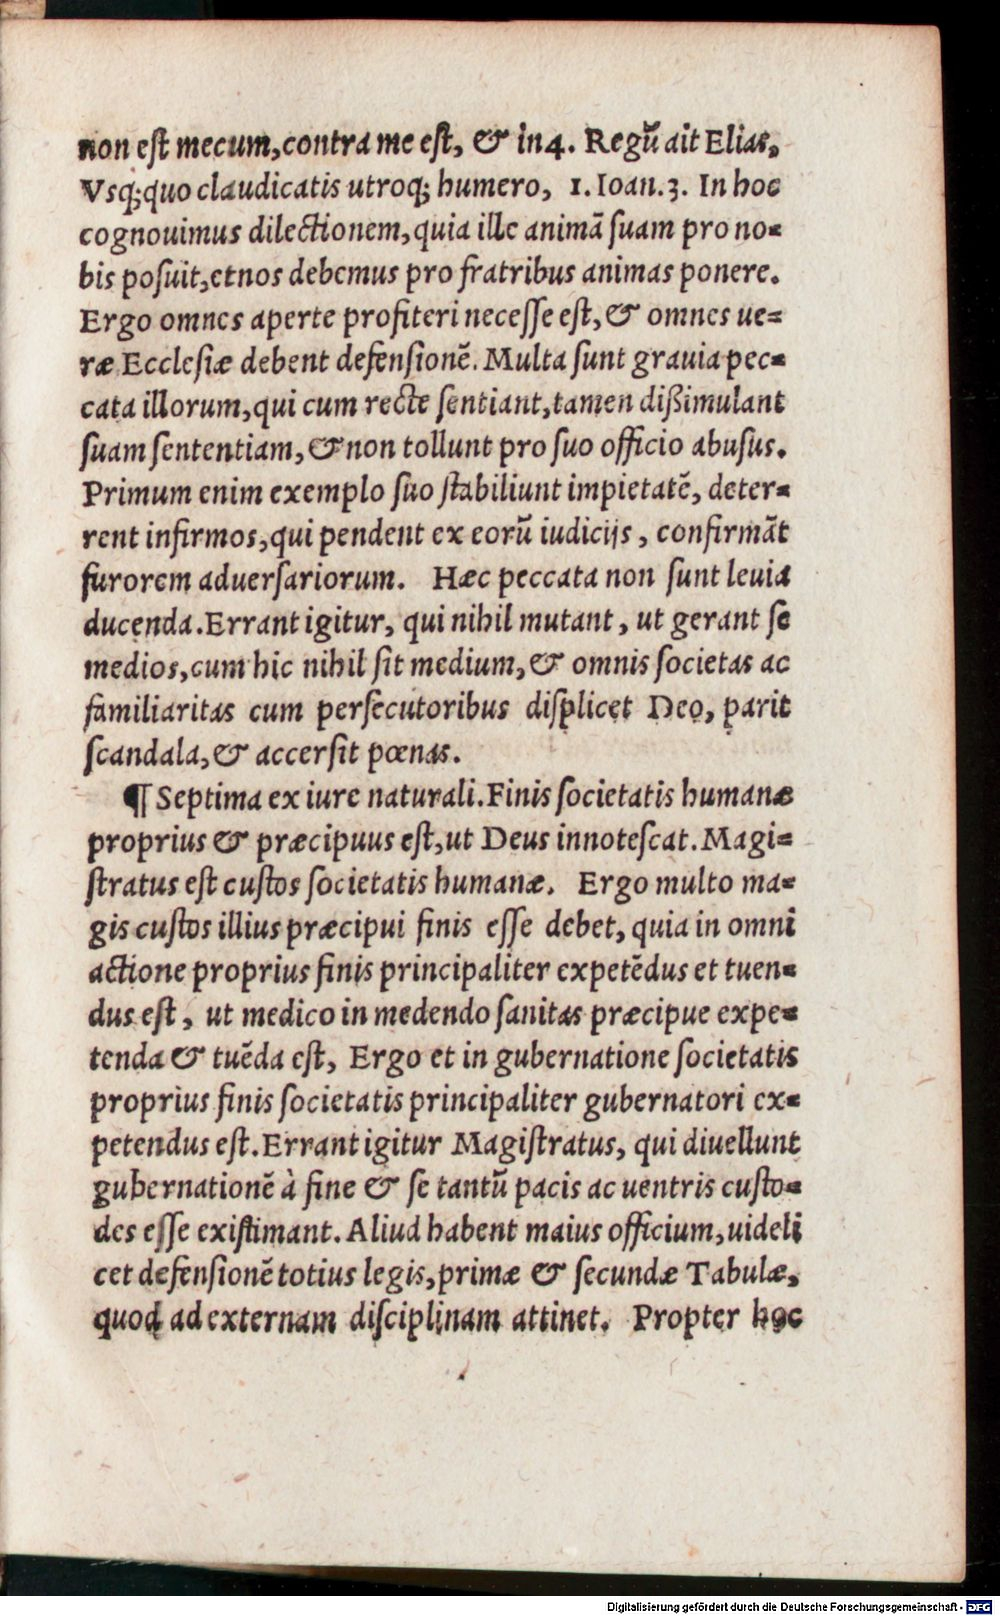 non est mecum, contra me est, & in 4. Regũ ait Elias,
Vsq;quo claudicatis utroq; humero, 1. Ioan. 3. In hoc
cognouimus dilectionem, quia ille animã suam pro no=
bis posuit, et nos debemus pro fratribus animas ponere.
Ergo omnes aperte profiteri necesse est, & omnes ue=
ræ Ecclesiæ debent defensionẽ. Multa sunt grauia pec=
cata illorum, qui cum recte sentiant, tamen dißimulant
suam sententiam, & non tollunt pro suo officio abusus.
Primum enim exemplo suo stabiliunt impietatẽ, deter=
rent infirmos, qui pendent ex eorũ iudicijs, confirmãt
furorem aduersariorum. Hæc peccata non sunt leuia
ducenda. Errant igitur, qui nihil mutant, ut gerant se
medios, cum hic nihil sit medium, & omnis societas ac
familiaritas cum persecutoribus displicet Deo, parit
scandala, & accersit pœnas.
¶ Septima ex iure naturali. Finis societatis humanæ
proprius & præcipuus est, ut Deus innotescat. Magi=
stratus est custos societatis humanæ. Ergo multo ma=
gis custos illius præcipui finis esse debet, quia in omni
actione proprius finis principaliter expetẽdus et tuen=
dus est, ut medico in medendo sanitas præcipue expe=
tenda & tuẽda est, Ergo et in gubernatione societatis
proprius finis societatis principaliter gubernatori ex=
petendus est. Errant igitur Magistratus, qui diuellunt
gubernationẽ à fine & se tantũ pacis ac uentris custo=
des esse existimant. Aliud habent maius officium, uideli
cet defensionẽ totius legis, primæ & secundæ Tabulæ,
quod ad externam disciplinam attinet. Propter hoc
Digitalisierung gefördert durch die Deutsche Forschungsgemeinschaft - DFG